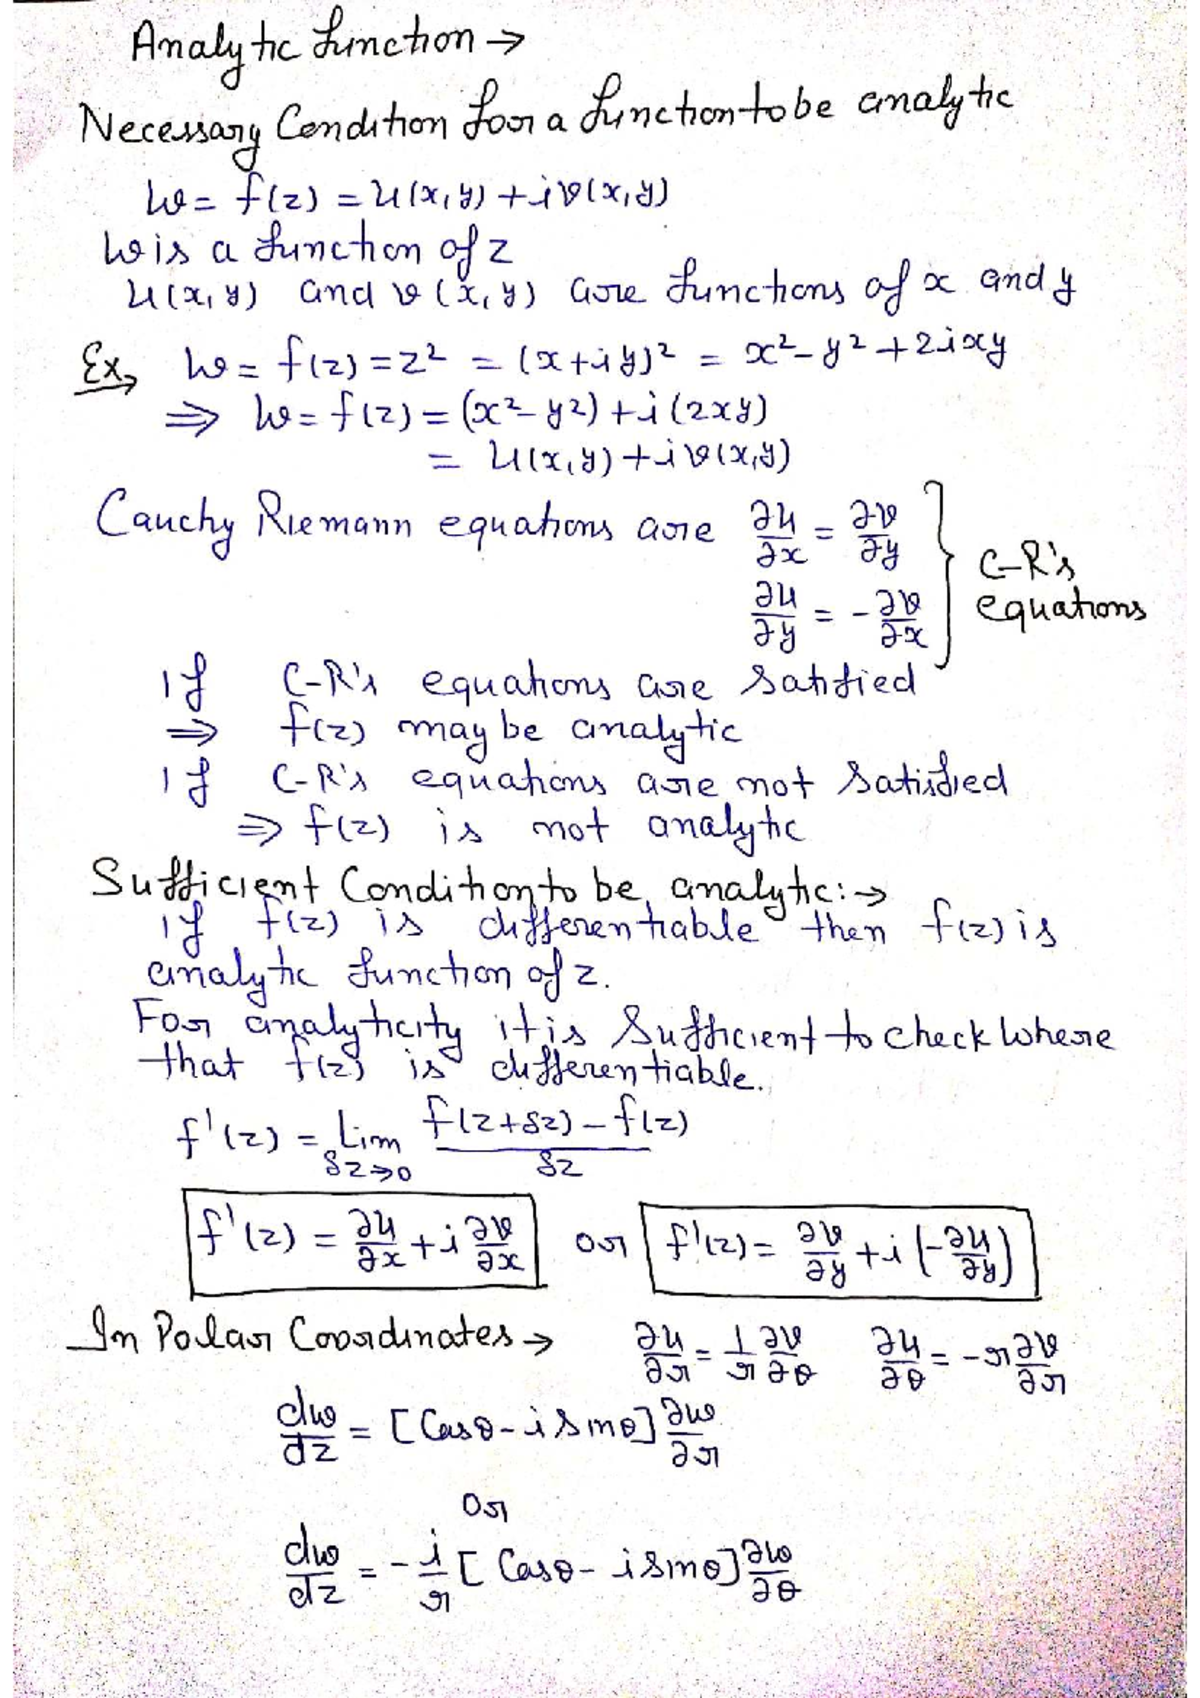 Analytic function →
Necessary Condition for a function to be analytic
w = f(z) = u(x,y) + iv(x,y)
w is a function of z
u(x,y) and v(x,y) are functions of x and y
Ex, w = f(z) = z² = (x+iy)² = x²-y²+2ixy
⇒ w = f(z) = (x²-y²) + i(2xy)
= u(x,y) + iv(x,y)
Cauchy Riemann equations are ∂u/∂x = ∂v/∂y
∂u/∂y = -∂v/∂x } C-R's equations
If C-R's equations are satisfied
⇒ f(z) may be analytic
If C-R's equations are not satisfied
⇒ f(z) is not analytic
Sufficient Condition to be analytic:→
If f(z) is differentiable then f(z) is
analytic function of z.
For analyticity it is sufficient to check where
that f(z) is differentiable.
f'(z) = Lim δz→0 f(z+δz)-f(z)/δz
f'(z) = ∂u/∂x + i ∂v/∂x or f'(z) = ∂v/∂y + i(-∂u/∂y)
In Polar Coordinates → ∂u/∂r = 1/r ∂v/∂θ ∂u/∂θ = -r ∂v/∂r
dw/dz = [Cosθ - i Sinθ] ∂w/∂r
Or
dw/dz = -i/r [Cosθ - i Sinθ] ∂w/∂θ